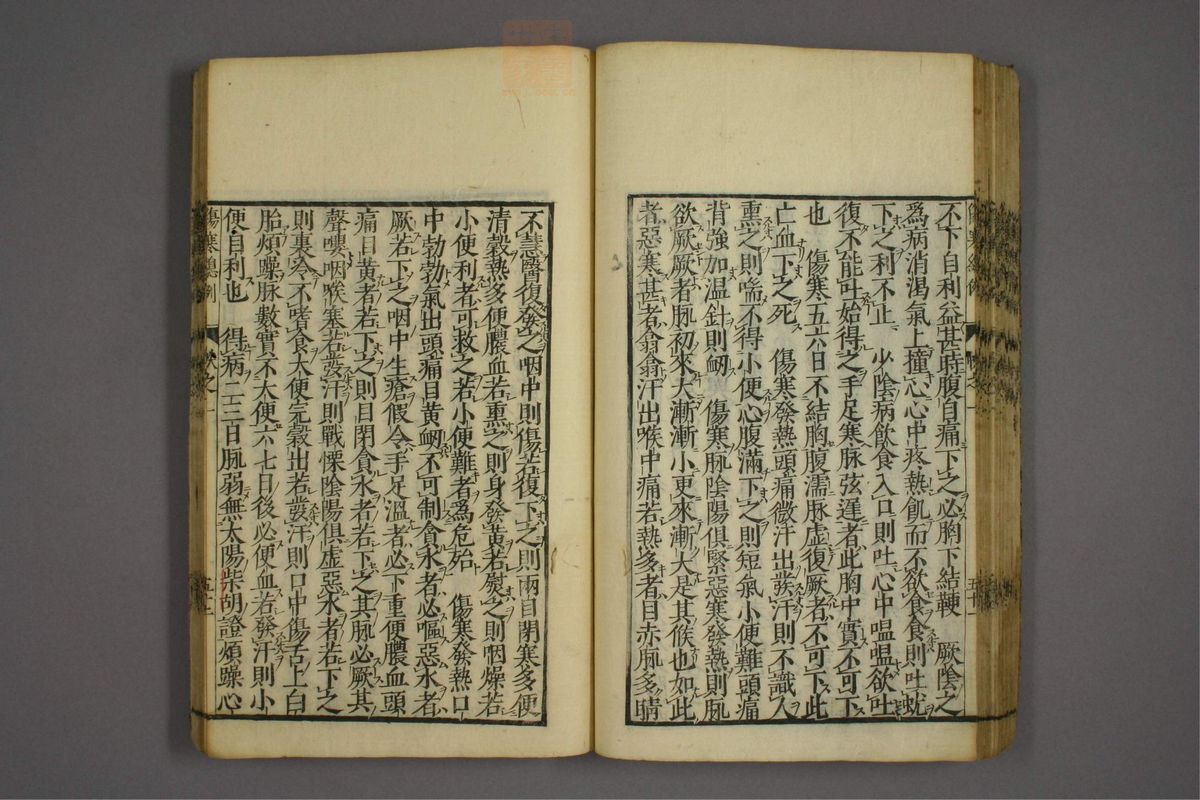 不下自利益甚時腹自痛下之必胸下結鞕　厥陰之
爲病消渴氣上撞心心中疼熱飢而不欲食食則吐蛇
下之利不止　少陰病飲食入口則吐心中嗢嗢欲吐
復不能吐始得之手足寒脉弦遲者此胸中實不可下
也　傷寒五六日不結胸腹濡脉虛復厥者不可下此
亡血下之死　傷寒發熱頭痛微汗出發汗則不識人
熏之則喘不得小便心腹滿下之則短氣小便難頭痛
背強加温針則衂　傷寒脉陰陽俱緊惡寒發熱則脉
欲厥厥者脉初來大漸漸小更來漸大是其候也如此
者惡寒甚者翕翕汗出喉中痛若熱多者目赤脉多睛
不慧醫復發之咽中則傷若復下之則兩目閉寒多便
清穀熱多便膿血若熏之則身發黃若熨之則咽燥若
小便利者可救之若小便難者爲危殆　傷寒發熱口
中勃勃氣出頭痛目黃衂不可制貪水者必嘔惡水者
厥若下之咽中生瘡假令手足溫者必下重便膿血頭
痛目黃者若下之則目閉貪水者若下之其脉必厥其
聲嚶咽喉塞若發汗則戰慄陰陽俱虛惡水者若下之
則裏冷不嗜食大便完穀出若發汗則口中傷舌上白
胎煩躁脉數實不大便六七日後必便血若發汗則小
便自利也　得病二三日脉弱無太陽柴胡證煩躁心
傷寒總例
卷之一
五十二